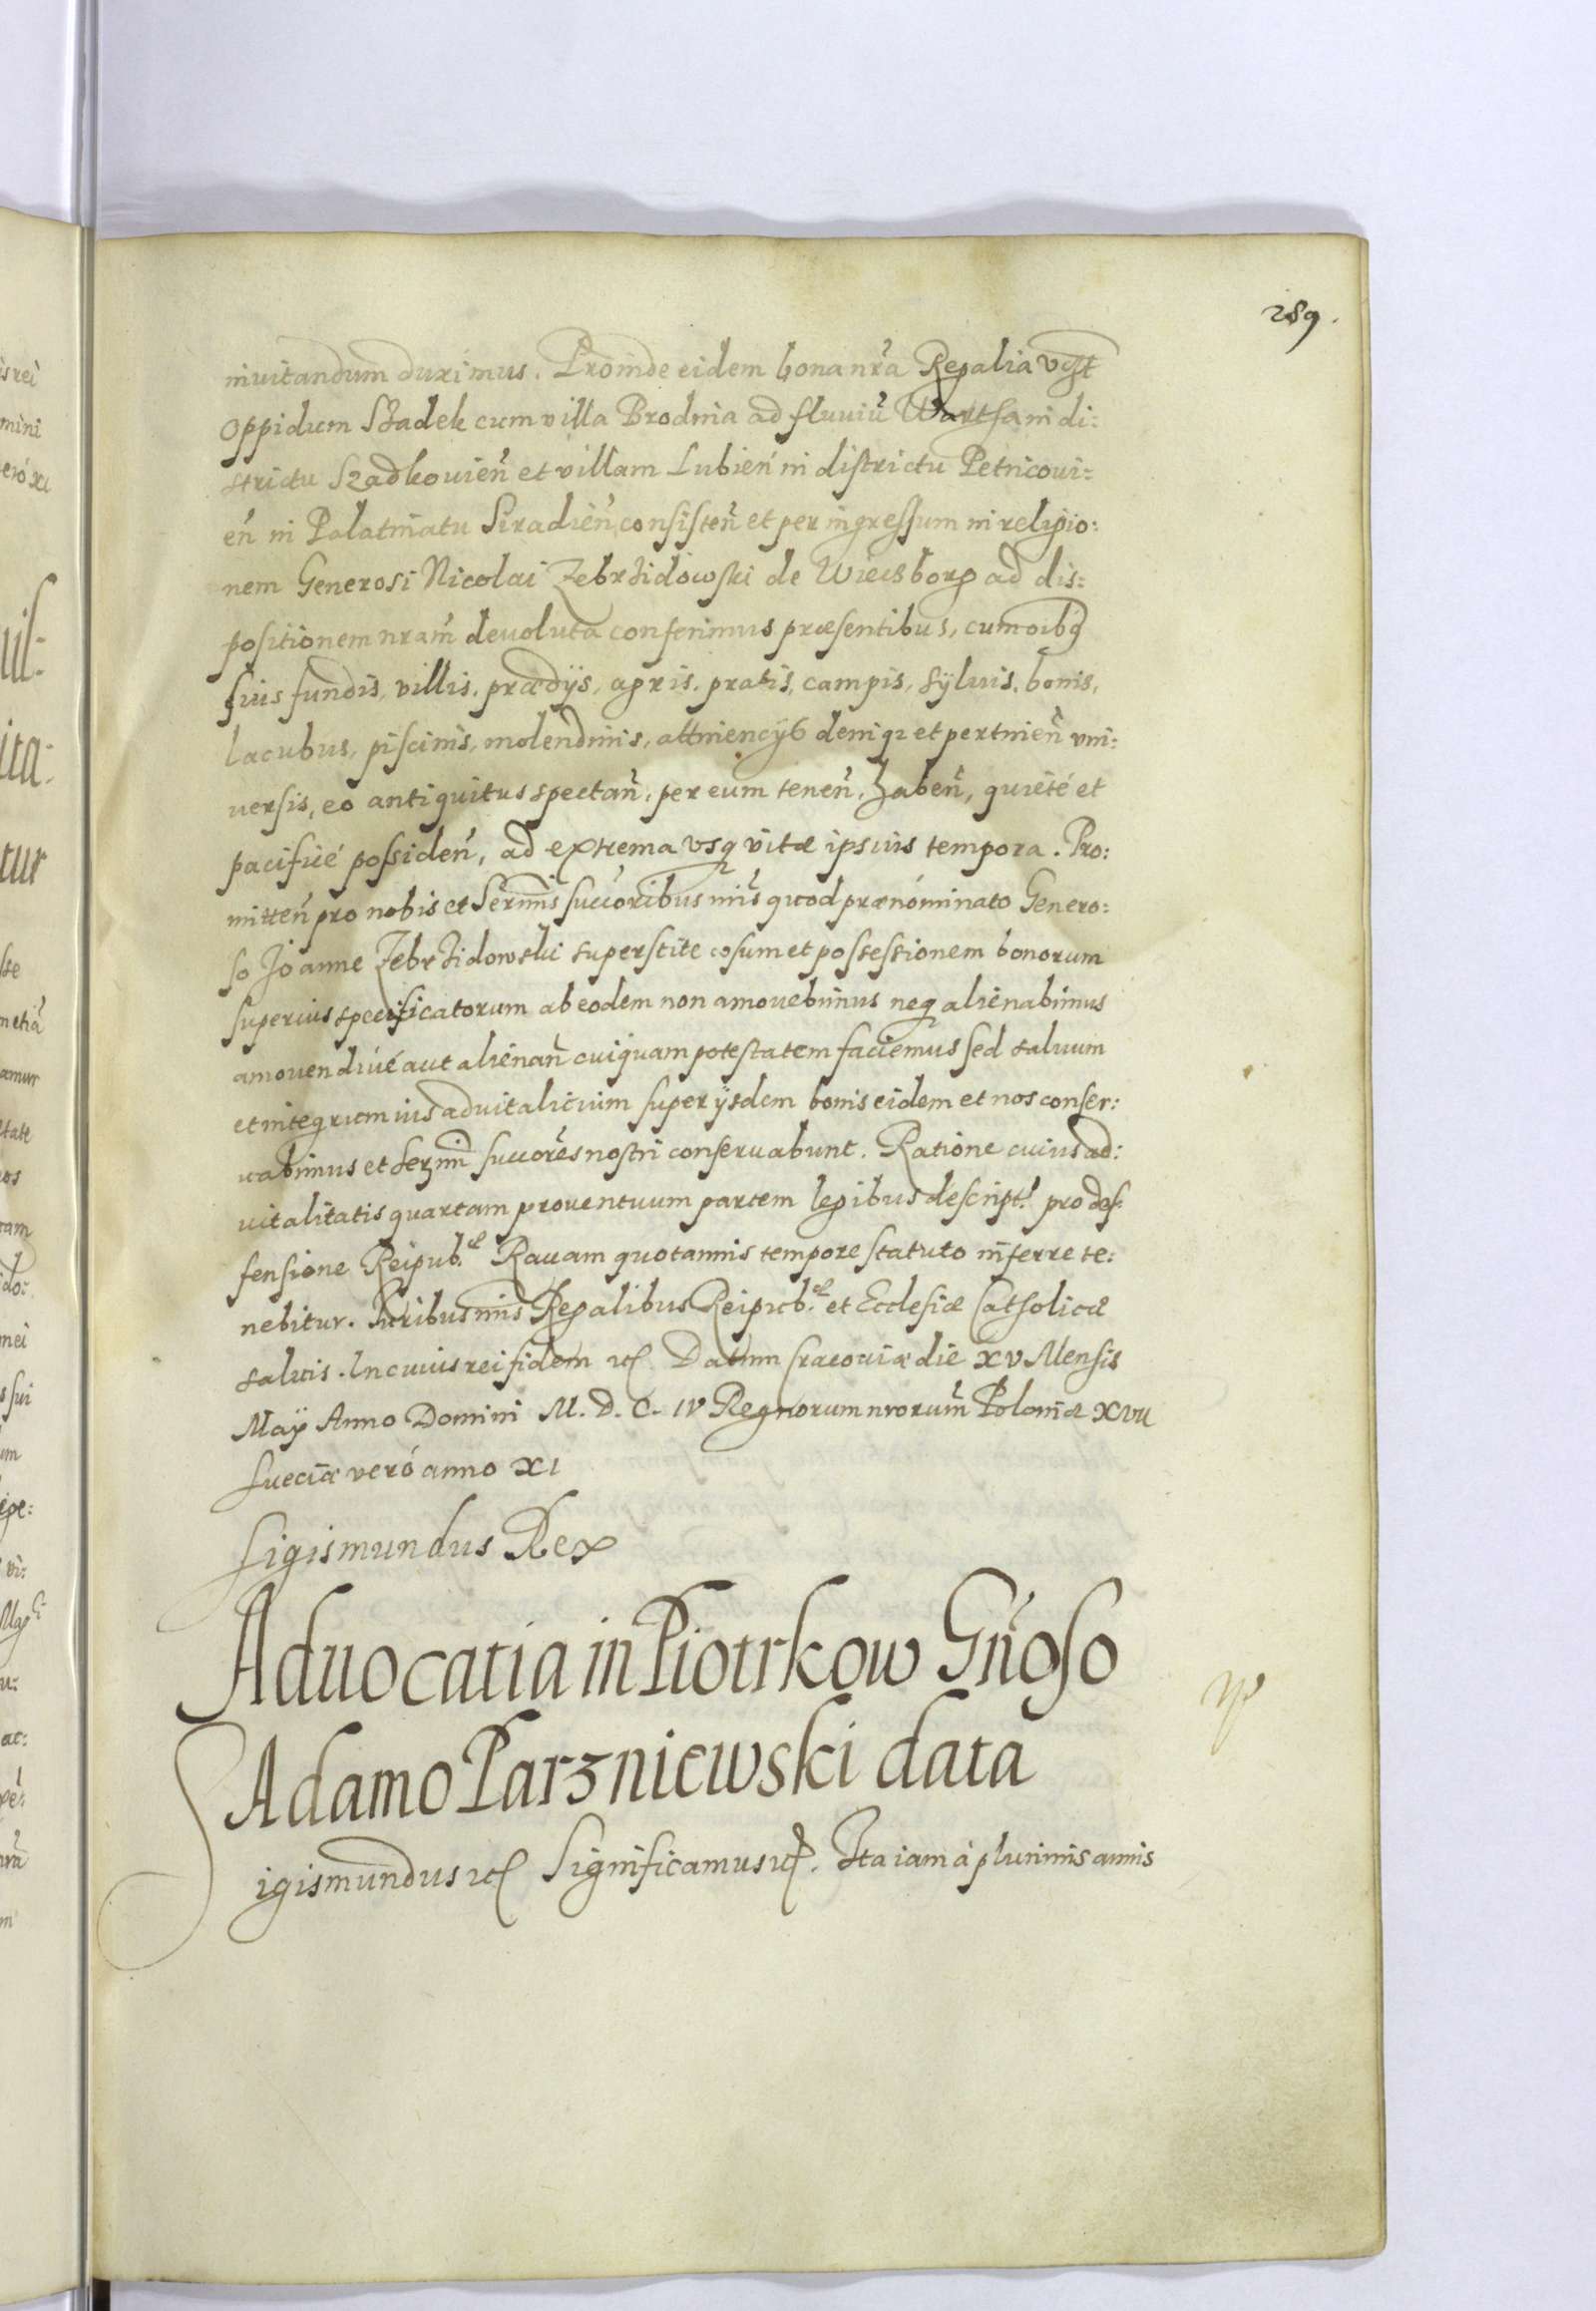 289.
inuitandum duximus. Proinde eidem bona nr̃a Regalia vczt
oppidum Szadek cum villa Brodnia ad fluuiũ Wartha in di:
strictu Szadkouien̄ et villam Lubień in districtu Petricoui=
en̄ in Palatinatu Siradien̄ consisten̄ et per ingressum in religio:
nem Generosi Nicolai Zebrzidowski de Wiecsborg ad dis:
positionem nram̄ deuoluta conferimus præsentibus, cum oībq
suis fundis, villis, prædijs, agris, pratis, campis, syluis, bonis,
lacubus, piscinis, molendinis, attinencÿs deniqz et pertinen̄ vni:
uersis, eo antiquitus spectan̄, per eum tenen̄, haben̄, quieté et
pacificé possiden̄, ad extrema vsq vitæ ipsius tempora. Pro:
mitten̄ pro nobis et Sermis succoribus nris̄ quod prænóminato Genero:
so Joanne Zebrzidowski superstite vsum et possessionem bonorum
superius specificatorum ab eodem non amouebimus neq alienabimus
amouendiué aut alienan̄ cuiquam potestatem faciemus sed saluum
et integrum ius aduitalicium super ijsdem bonis eidem et nos conser:
uabimus et Sermi succores̄ nostri conseruabunt. Ratione cuius ad:
uitalitatis quartam prouentuum partem legibus descript. pro def:
fensione Reipub.æ Rauam quotannis tempore statuto inferre te:
nebitur. Iuribus nris̄ Regalibus Reipub.æ et Ecclesiæ Catholicæ
saluis. In cuius rei fidem etc̄ Datum Cracouiæ die XV Mensis
Maÿ Anno Domini M. D. C. IV Regnorum nrorum̄ Poloniæ XVII
Sueciæ veró anno XI
Sigismundus Rex
Aduocatia in Piotrkow Gn̄oso
Adamo Parzniewski data
Sigismundus etc̄ Significamus etc̄. Ita iam à plurimis annis